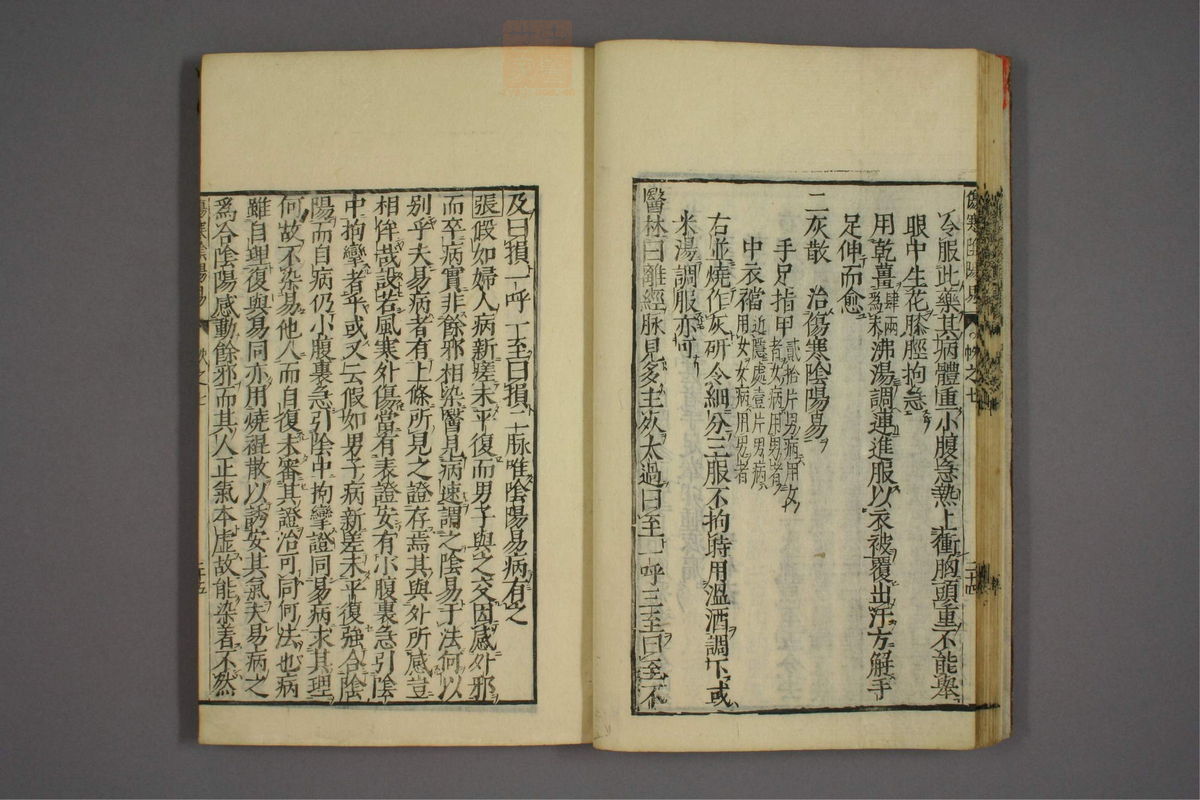 傷寒陰陽易 卷之七 二十四
冷服此藥其病體重小腹急熱上衝胸頭重不能舉
眼中生花膝脛拘急
用乾薑肆兩爲末沸湯調連進服以衣被覆出汗方解手
足伸而愈
二灰散 治傷寒陰陽易
手足指甲貳拾片男病用女
者女病用男者
中衣襠近隱處壹片男病
用女女病用男者
右並燒作灰研令細分三服不拘時用溫酒調下或
米湯調服亦可
醫林曰離經脉見多主死太過曰至一呼三至曰至不
及曰損一呼一至曰損二脉唯陰陽易病有之
張假如婦人病新瘥未平復而男子與之交因感外邪
而卒病實非餘邪相染醫見病速謂之陰易于法何以
别乎夫易病者有上條所見之證存焉其與外所感豈
相侔哉設若風寒外傷當有表證安有小腹裏急引陰
中拘攣者乎或又云假如男子病新差未平復強合陰
陽而自病仍小腹裏急引陰中拘攣證同易病求其理
何故不染易他人而自復未審其證治可同何法也病
雖自理復與易同亦用燒裩散以誘安其氣夫易病之
爲合陰陽感動餘邪而其人正氣本虛故能染著不然
傷寒陰陽易 卷之七 二十五